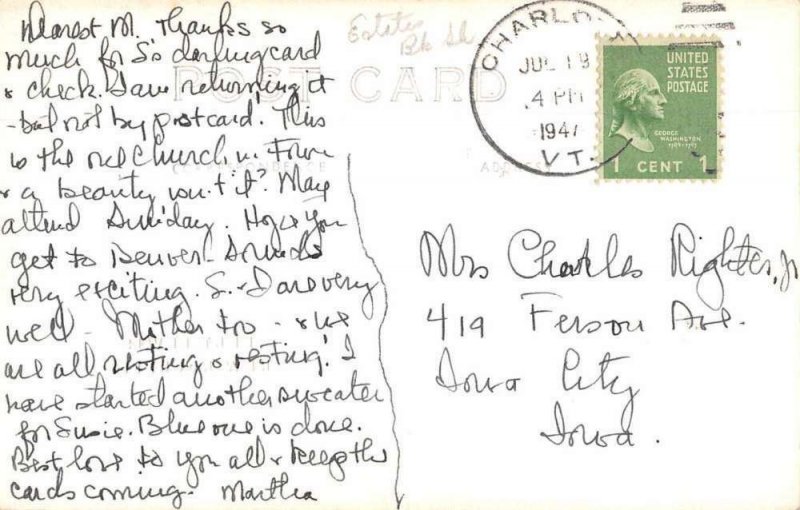 Dearest M. Thanks so
much for S's darling card
& check. I am returning it
- but not by postcard! This
is the old Church in Town
& a beauty isn't it? May
attend Sunday. Hope you
get to Denver - Sounds
very exciting. S. & I are very
well - Mother too - & we
are all resting & resting! I
have started another sweater
for Susie. Blue one is done.
Best love to you all & keep the
cards coming. Martha
Estes
Pk
POST CARD
CHARLO
JUL 19
4 PM
1947
VT.
UNITED
STATES
POSTAGE
GEORGE
WASHINGTON
1789-1797
1 CENT 1
Mrs Charles Righter, Jr
419 Ferson Ave.
Iowa City
Iowa.